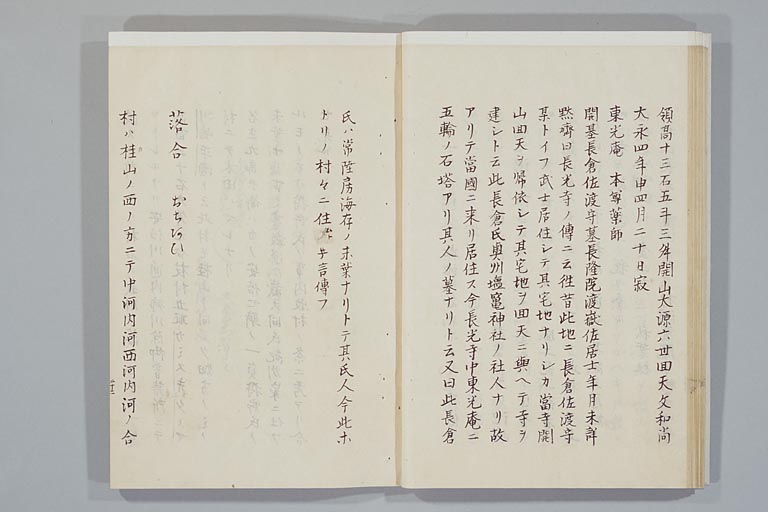 領高十三石五斗三舛開山大源六世回天文和尚
大永四年申四月二十日寂
東光庵 本尊藥師
開基長倉佐渡守墓長隆院渡嶽佐居士年月未詳
黙齊曰長光寺ノ傳ニ云往昔此地ニ長倉佐渡守
某トイフ武士居住シテ其宅地ナリシカ當寺開
山回天ヲ帰依シテ其宅地ヲ回天ニ與ヘテ寺ヲ
建シト云此長倉氏奥州塩竃神社ノ社人ナリ故
アリテ當國ニ来リ居住ス今長光寺中東光庵ニ
五輪ノ石塔アリ其人ノ墓ナリト云又曰此長倉
氏ハ常陸房海存ノ末葉ナリトテ其氏人今此ホ
トリノ村々ニ住ス ト言傳フ
落合 おちあひ
村ハ桂山ノ西ノ方ニテ中河内河西河内河ノ合